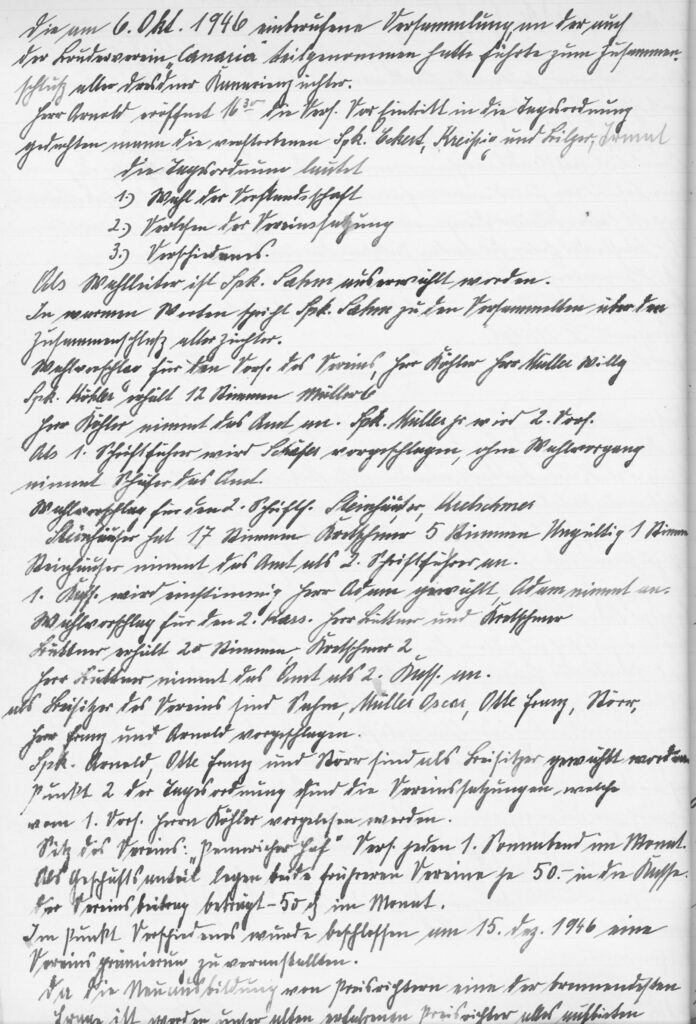 Die am 6. Okt. 1946 einberufene Versammlung, an der auch
der Bruderverein „Canaria" teilgenommen hatte führte zum Zusammen-
schluß aller Dresdner Kanarienzüchter.
Herr Arnold eröffnet 16³⁰ die Vers. Vor Eintritt in die Tagesordnung
gedachten mann die verstorbenen Spk. Eckert, und
die Tagesordnung lautet
1.) Wahl der Vorstandsschaft
2.) Verlesen der Vereinssatzung
3.) Verschiedenes.
Als Wahlleiter ist Spk. Sahm auserwählt worden.
In warmen Worten spricht Spk. Sahm zu den Versammelten über den
Zusammenschluß aller Züchter.
Wahlvorschlag für den Vors. des Vereins, Herr Köhler Herr Müller Willy
Spk. Köhler erhält 12 Stimmen Müller 6
Herr Köhler nimmt das Amt an. Spk. Müller jr wird 2. Vors.
Als 1. Schriftführer wird Schäfer vorgeschlagen, ohne Wahlvorgang
nimmt Schäfer das Amt.
Wahlvorschlag für den 2. Schriftf. Steinhäuser, Kretschmer
Steinhäuser hat 17 Stimmen Kretschmer 5 Stimmen Ungültig 1 Stimme
Steinhäuser nimmt das Amt als 2. Schriftführer an.
1. Kass. wird einstimmig Herr Adam gewählt, Adam nimmt an.
Wahlvorschlag für den 2. Kass. Herr Büttner und Kretschmer
Büttner erhält 20 Stimmen, Kretschmer 2
Herr Büttner nimmt das Amt als 2. Kass. an.
als Beisitzer des Vereins sind Sahm, Müller Oscar, Otte Franz, Störr,
Herr Franz und Arnold vorgeschlagen.
Spk. Arnold, Otte Franz und Störr sind als Beisitzer gewählt worden
Punkt 2 der Tagesordnung sind die Vereinssatzungen welche
vom 1. Vors. Herrn Köhler vorgelesen werden.
Sitz des Vereins: Hof" Vers. jeden 1. Sonnabend im Monat.
Als Geschäftsanteil legen beide früheren Vereine je 50.- in die Kasse.
der Vereinsbeitrag beträgt -50 ₰ im Monat.
Im Punkt Verschiedenes wurde beschlossen am 15. Dez. 1946 eine
Vereinsprämierung zu veranstallten.
Da die Neuausbildung von Preisrichtern eine der brennendsten
Frage ist werden unser alten erfahrenen Preisrichter alles aufbieten